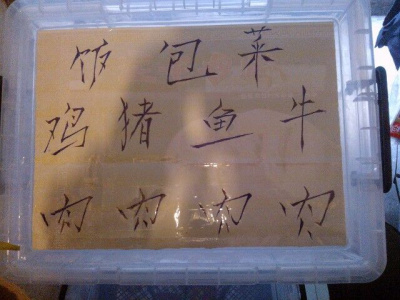 饭 包 菜
鸡 猪 鱼 牛
肉 肉 肉 肉